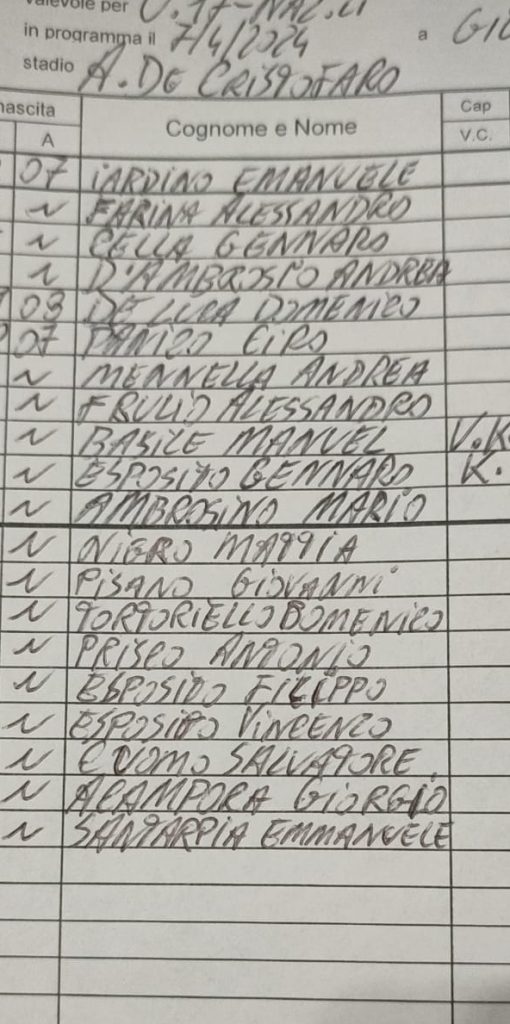 valevole per U.17-NAZ.LI
in programma il 7/4/2024 a GIU
stadio A. DE CRISTOFARO
nascita Cognome e Nome Cap
A V.C.
07 IARDINO EMANUELE
~ FARINA ALESSANDRO
~ CELLA GENNARO
~ D'AMBROSIO ANDREA
08 DE LUCA DOMENICO
07 PANICO CIRO
~ MENNELLA ANDREA
~ FRULIO ALESSANDRO
~ BASILE MANUEL V.K
~ ESPOSITO GENNARO K.
~ AMBROSINO MARIO
~ NIGRO MATTIA
~ PISANO GIOVANNI
~ TORTORIELLO DOMENICO
~ PRISCO ANTONIO
~ ESPOSITO FILIPPO
~ ESPOSITO VINCENZO
~ CUOMO SALVATORE
~ ACAMPORA GIORGIO
~ SANTARPIA EMMANUELE